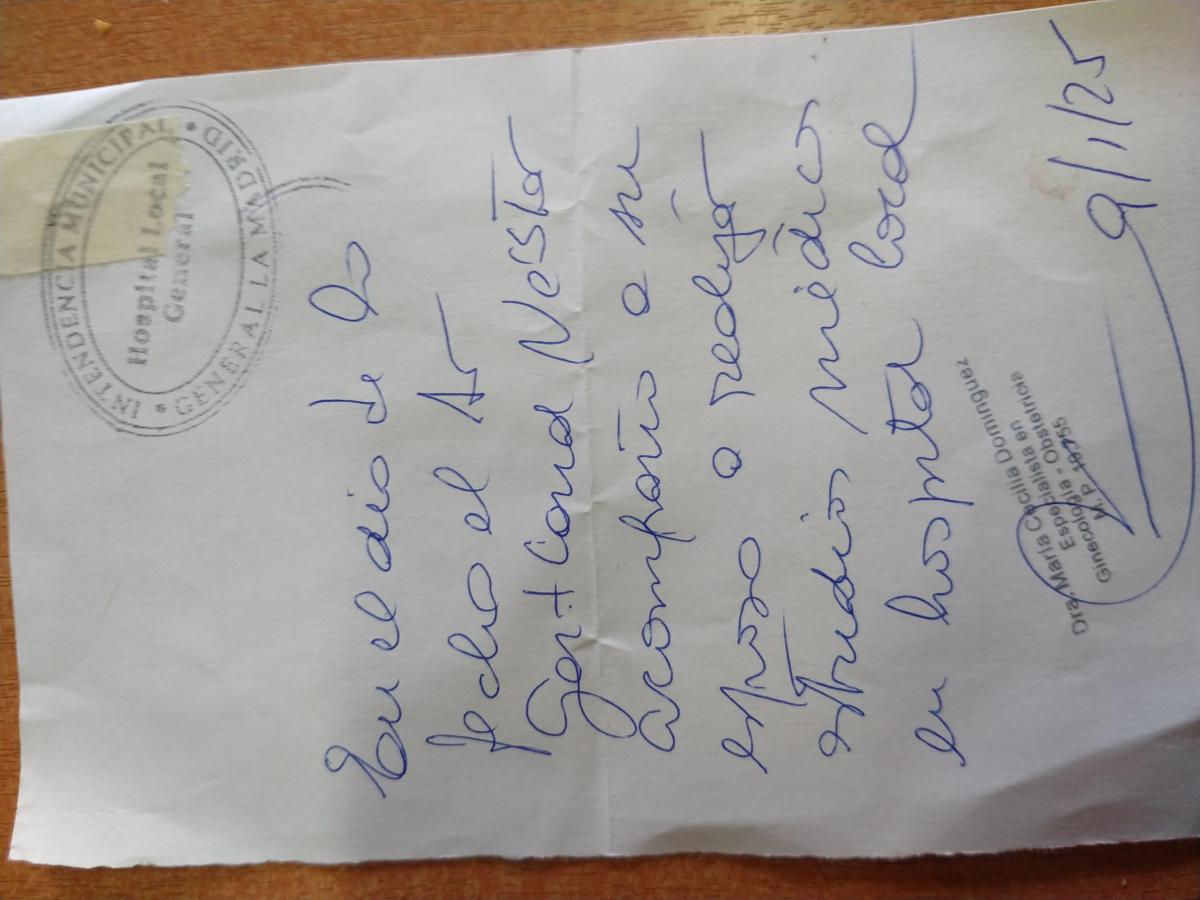 INTENDENCIA MUNICIPAL
Hospital Local
General
GENERAL LA MADRID
En el dia de la
fecha el Sr
Conrad Nestor
acompaño a su
esposa a realizar
estudios médicos
en hospital local
Dra. María Cecilia Dominguez
Especialista en
Ginecología - Obstetricia
M. P.
9/1/25